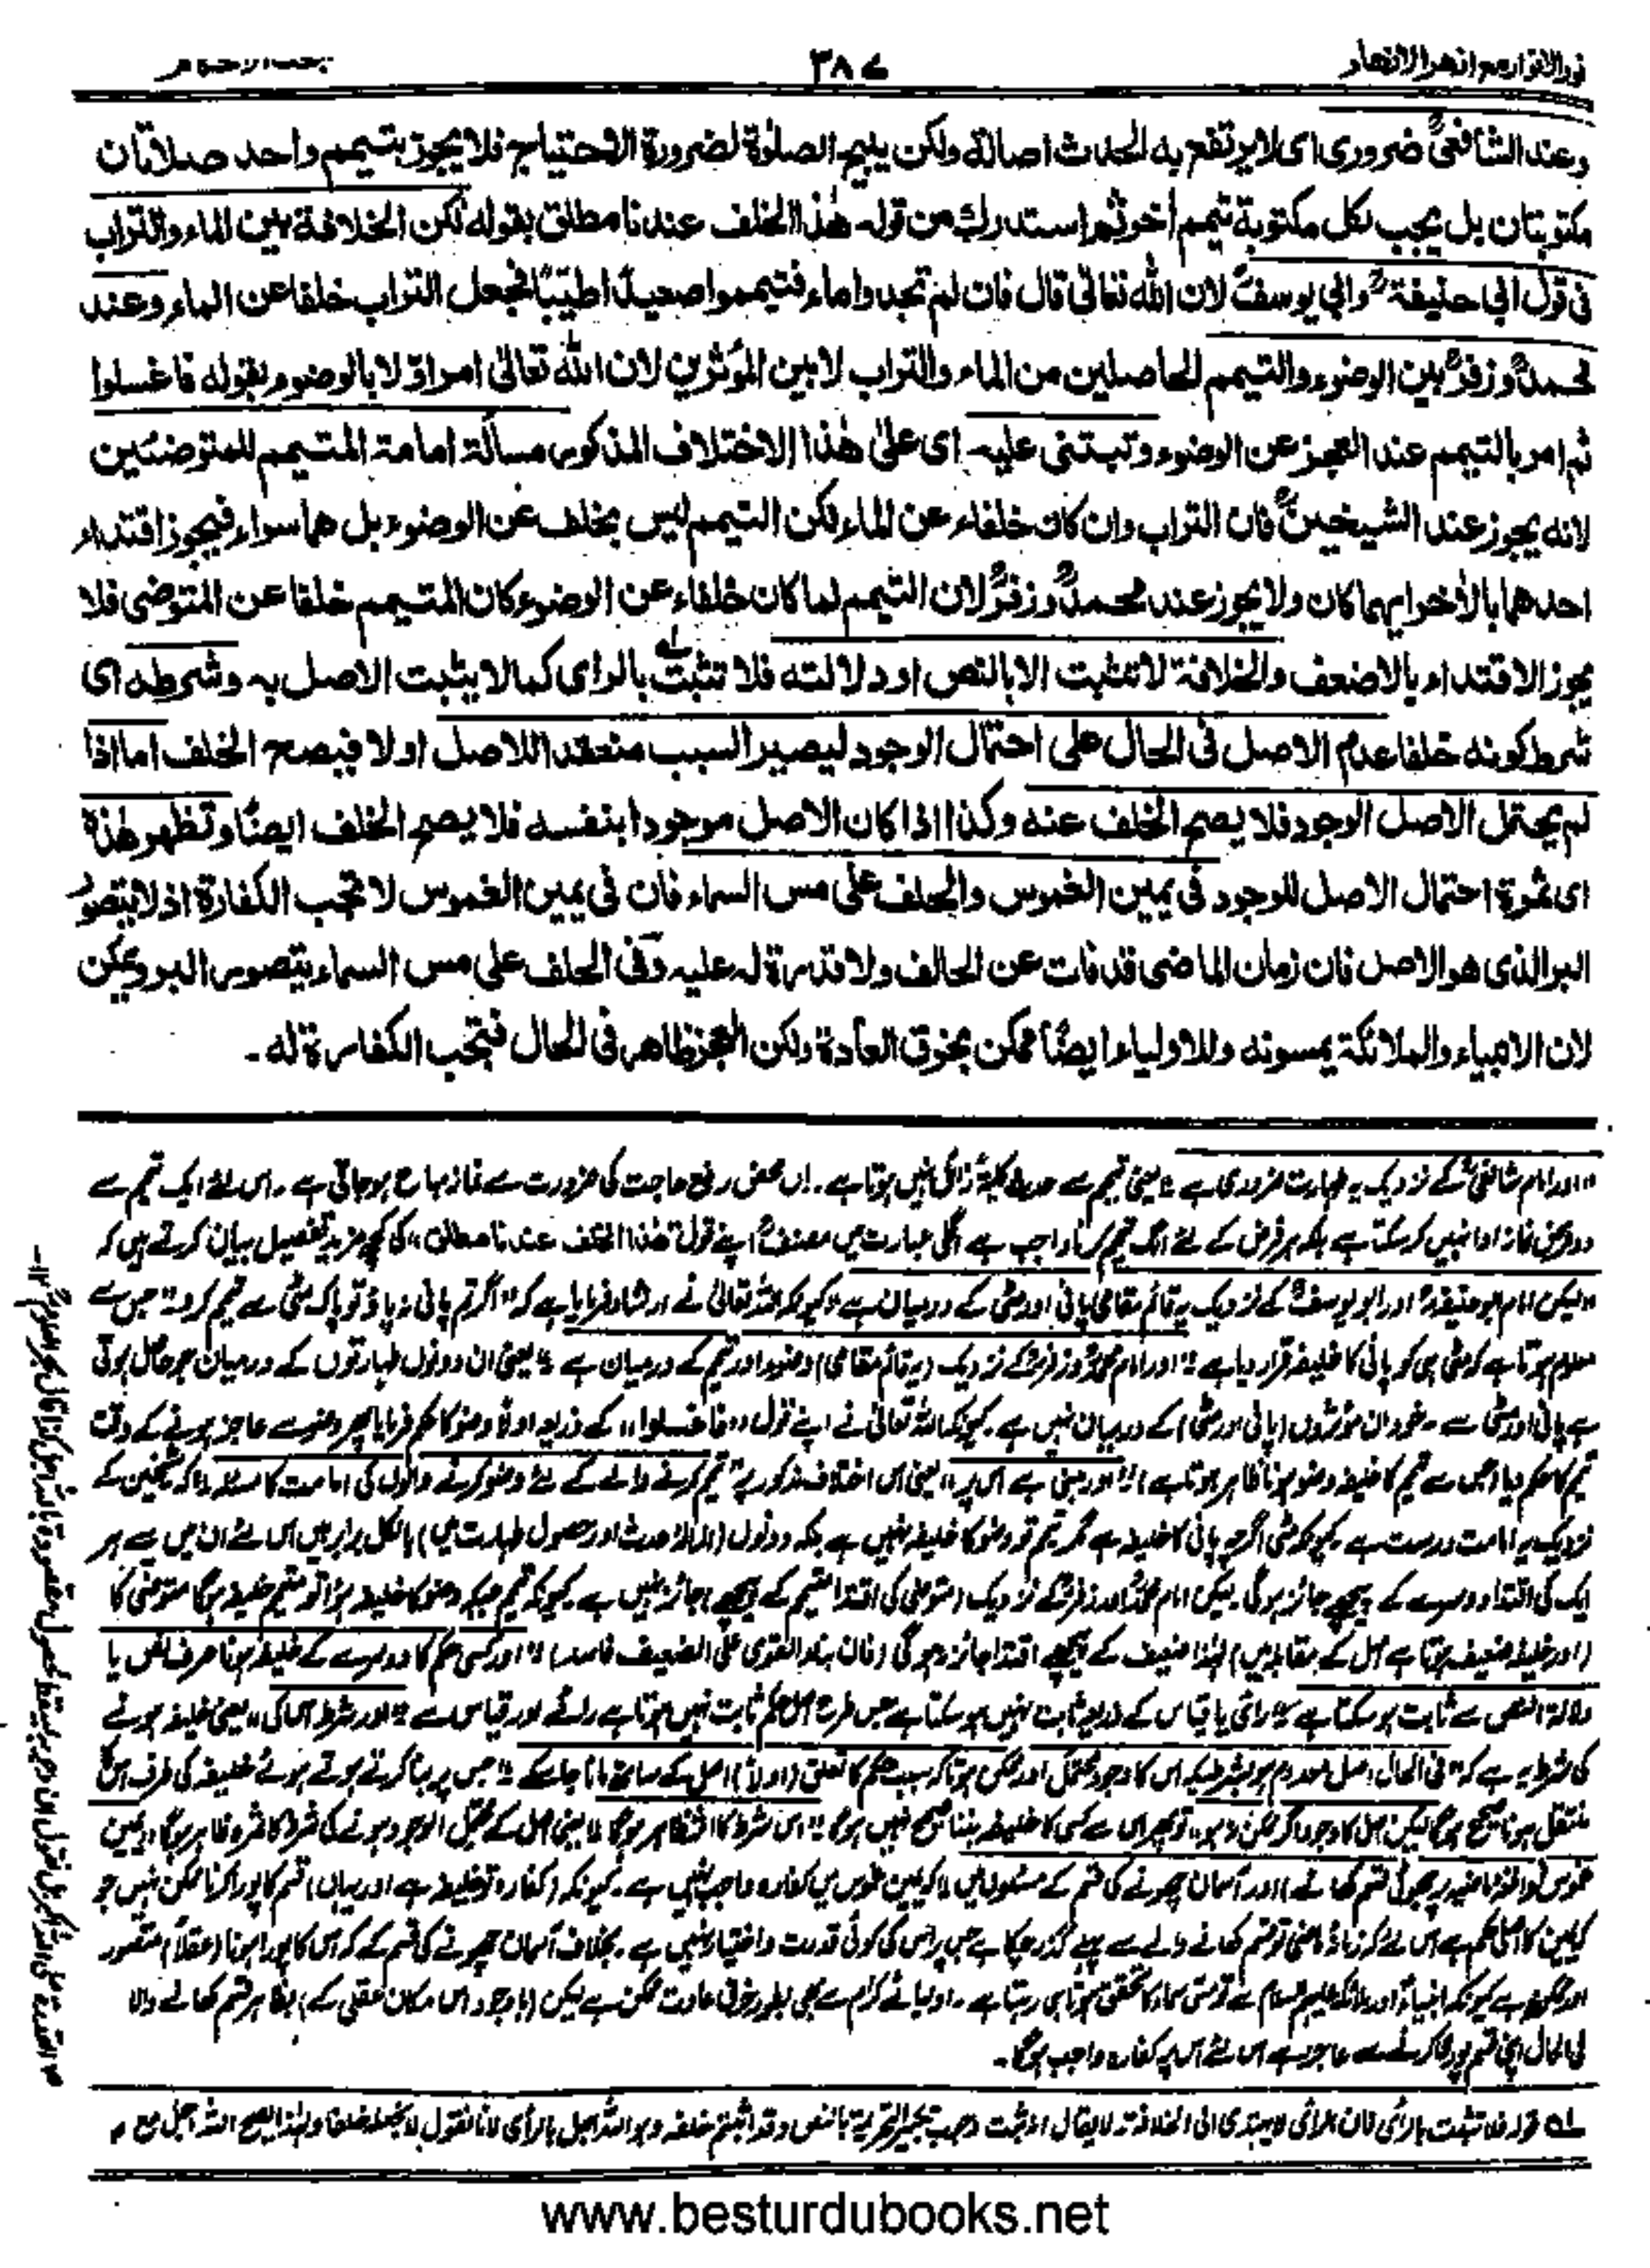 نور الانوار مع ازهر الازهار
۳۸۷
وعند الشافعیؒ ضروری ای لا یرتفع به الحدث اصالة ولكن یبیح الصلوٰة لضرورة الاحتیاج فلا یجوز بتیمم واحد صلاتان
مکتوبتان بل یجب لکل مکتوبة تیمم اٰخر ثم استدرك من قوله هٰذا الخلف عندنا مطلق بقوله لکن الخلافة بین الماء والتراب
فی قول ابی حنیفةؒ وابی یوسفؒ لان الله تعالٰی قال فان لم تجدوا ماء فتیمموا صعیدًا طیّبًا فجعل التراب خلفا عن الماء وعند
محمدؒ وزفرؒ بین الوضوء والتیمم الحاصلین من الماء والتراب لا بین المؤثرین لان الله تعالٰی امر اولا بالوضوء بقوله فاغسلوا
ثم امر بالتیمم عند العجز عن الوضوء وتبتنی علیه ای علیٰ هٰذا الاختلاف المذکور مسألة امامة المتیمم للمتوضئین
لانه یجوز عند الشیخینؒ فان التراب وان کان خلفاء عن الماء لکن التیمم لیس بخلف عن الوضوء بل هما سواء فیجوز اقتداء
احدهما بالاٰخر ایهما کان ولا یجوز عند محمدؒ وزفرؒ لان التیمم لما کان خلفاء عن الوضوء کان المتیمم خلفا عن المتوضی فلا
یجوز الاقتداء بالاضعف والخلافة لا تثبت الا بالنص او دلالته فلا تثبت بالرای کما لا یثبت الاصل به وشرطه ای
شرط کونه خلفا عدم الاصل فی الحال علی احتمال الوجود لیصیر السبب منعقدا للاصل اولا فیصح الخلف اما اذا
لم یحتمل الاصل الوجود فلا یصح الخلف عنه وکذا اذا کان الاصل موجودا بنفسه فلا یصح الخلف ایضًا وتظهر هٰذه
ای ثمرة احتمال الاصل للوجود فی یمین الغموس والحلف علی مس السماء فان فی یمین الغموس لا تجب الکفارة اذ لا یتصور
البر الذی هو الاصل فان زمان الماضی قد فات عن الحالف ولا قدرة له علیه وفی الحلف علی مس السماء یتصور البر ویمکن
لان الانبیاء والملائکة یمسونه وللاولیاء ایضًا ممکن بخرق العادة ولکن العجز ظاهر فی الحال فتجب الکفارة له۔
"اور امام شافعیؒ کے نزدیک یہ طہارت ضروری ہے" یعنی تیمم سے حدث کلیۃً زائل نہیں ہوتا ہے۔ ہاں محض رفع حاجت کی ضرورت سے نماز مباح ہوجاتی ہے۔ اس لئے ایک تیمم سے
دو فرض نماز ادا نہیں کرسکتا ہے بلکہ ہر فرض کے لئے الگ تیمم کرنا واجب ہے اگلی عبارت میں مصنفؒ اپنے قول "هٰذا الخلف عندنا مطلق" کی کچھ مزید تفصیل بیان کرتے ہیں کہ
"لیکن امام ابو حنیفہؒ اور ابو یوسفؒ کے نزدیک یہ قائم مقامی پانی اور مٹی کے درمیان ہے" کیونکہ اللہ تعالیٰ نے ارشاد فرمایا ہے کہ "اگر تم پانی نہ پاؤ تو پاک مٹی سے تیمم کرو" جس سے
معلوم ہوتا ہے کہ مٹی ہی کو پانی کا خلیفہ قرار دیا ہے "اور امام محمدؒ و زفرؒ کے نزدیک (یہ قائم مقامی) وضو اور تیمم کے درمیان ہے" یعنی ان دونوں طہارتوں کے درمیان جو حاصل ہوتی
ہے پانی اور مٹی سے۔ خود ان مؤثروں (پانی اور مٹی) کے درمیان نہیں ہے۔ کیونکہ اللہ تعالیٰ نے اپنے قول "فاغسلوا" کے ذریعہ اولاً وضو کا حکم فرمایا پھر وضو سے عاجز ہونے کے وقت
تیمم کا حکم دیا (جس سے تیمم کا خلیفہ وضو ہونا ظاہر ہوتا ہے) "اور مبنی ہے اس پر" یعنی اس اختلاف مذکور پر "تیمم کرنے والے کے لئے وضو کرنے والوں کی امامت کا مسئلہ" کہ شیخین کے
نزدیک یہ امامت درست ہے کیونکہ مٹی اگرچہ پانی کا خلیفہ ہے مگر تیمم تو وضو کا خلیفہ نہیں ہے بلکہ دونوں (ازالۂ حدث اور حصول طہارت میں) بالکل برابر ہیں اس لئے ان میں سے ہر
ایک کی اقتداء دوسرے کے پیچھے جائز ہوگی۔ لیکن امام محمدؒ اور زفرؒ کے نزدیک (متوضی کی اقتدا متیمم کے پیچھے) جائز نہیں ہے کیونکہ تیمم جبکہ وضو کا خلیفہ ہوا تو متیمم خلیفہ ہوگا متوضی کا
(اور خلیفہ ضعیف ہوتا ہے اصل کے مقابلہ میں) لہذا ضعیف کے پیچھے اقتدا جائز نہ ہوگی (فان بناء القوی علی الضعیف فاسد) "اور کسی حکم کا دوسرے کے خلیفہ ہونا صرف نص یا
دلالۃ النص سے ثابت ہوسکتا ہے" رائے یا قیاس کے ذریعہ ثابت نہیں ہوسکتا ہے جس طرح اصل حکم ثابت نہیں ہوتا ہے رائے اور قیاس سے "اور شرط اس کی" یعنی خلیفہ ہونے
کی شرط یہ ہے کہ "فی الحال اصل معدوم ہو بشرطیکہ اس کا وجود محتمل اور ممکن ہو تاکہ سبب حکم کا تعلق (اولاً) اصل کے ساتھ مانا جاسکے" جس پر بنا کرتے ہوتے ہوئے خلیفہ کی طرف اس کا
منتقل ہونا صحیح ہوگا لیکن اصل کا وجود اگر ممکن نہ ہو، تو پھر اس سے کسی کا خلیفہ بننا صحیح نہیں ہوگا "اس شرط کا اثر ظاہر ہوگا" یعنی اصل کے محتمل الوجود ہونے کی شرط کا ثمرہ ظاہر ہوگا "یمین
غموس اور آسمان چھونے کی قسم کے مسئلوں میں" کہ یمین غموس میں کفارہ واجب نہیں ہے۔ کیونکہ (کفارہ تو خلیفہ ہے اور یہاں) قسم کا پورا کرنا ممکن نہیں جو
کہ یمین کا اصلی حکم ہے اس لئے کہ زمانۂ ماضی تو قسم کھانے والے سے پہلے گذر چکا ہے جس پر اس کی کوئی قدرت و اختیار نہیں ہے۔ بخلاف آسمان چھونے کی قسم کے کہ اس کا پورا ہونا (عقلاً) متصور
اور ممکن ہے کیونکہ انبیاءؑ اور ملائکہ علیہم السلام سے تو مس سماء کا تحقق ہوتا ہی رہتا ہے۔ اولیائے کرام سے بھی بطور خرق عادت ممکن ہے لیکن (باوجود اس امکان عقلی کے) بظاہر قسم کھانے والا
فی الحال اپنی قسم پوری کرنے سے عاجز ہے اس لئے اس پر کفارہ واجب ہوگا۔
لے قولہ فلا تثبت بالرأی فان الرأی لا یہتدی الی الخلافة لا یقال
www.besturdubooks.net